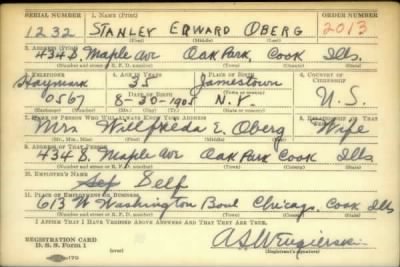 SERIAL NUMBER 1. NAME (Print) ORDER NUMBER
1232 STANLEY EDWARD OBERG 2013
(First) (Middle) (Last)
2. ADDRESS (Print)
434 S. Maple Av Oak Park, Cook Ills.
(Number and street or R. F. D. number) (Town) (County) (State)
3. TELEPHONE 4. AGE IN YEARS 5. PLACE OF BIRTH 6. COUNTRY OF CITIZENSHIP
Haymark 35 Jamestown
DATE OF BIRTH
0567 8-30-1905 N.Y. U.S.
7. NAME OF PERSON WHO WILL ALWAYS KNOW YOUR ADDRESS 8. RELATIONSHIP OF THAT PERSON
Mrs. Wilfreda E. Oberg Wife
(Mr., Mrs., Miss) (First) (Middle) (Last)
9. ADDRESS OF THAT PERSON
434 S. Maple Av Oak Park Cook Ills
(Number and street or R. F. D. number) (Town) (County) (State)
10. EMPLOYER'S NAME
Self
11. PLACE OF EMPLOYMENT OR BUSINESS
613 W Washington Boul Chicago, Cook Ills
(Number and street or R. F. D. number) (Town) (County) (State)
I AFFIRM THAT I HAVE VERIFIED ABOVE ANSWERS AND THAT THEY ARE TRUE.
REGISTRATION CARD
D. S. S. Form 1